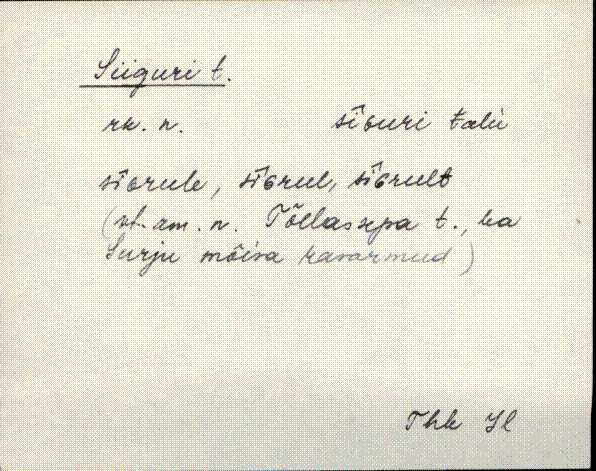 Siiguri t.
rk. n. sīɢuri talu
sīɢrule, sīɢrul, sīɢrult
(vt. am. n. Tõllassepa t., ka
Surju mõisa kasarmud)
Thk Hl